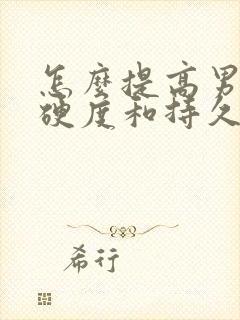 怎麼提高男
硬度和持久
希行